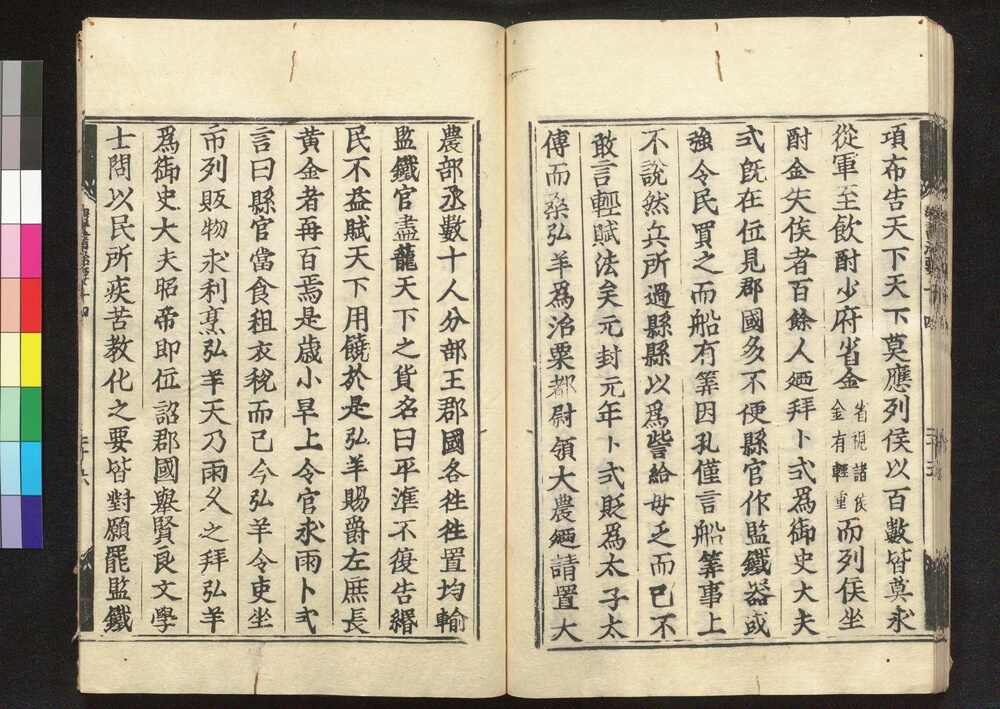 項布告天下天下莫應列侯以百數皆莫求
從軍至飲酎少府省金省視諸侯金有輕重而列侯坐
酎金失侯者百餘人廼拜卜式爲御史大夫
式旣在位見郡國多不便縣官作監鐵器或
強令民買之而船有筭因孔僅言船筭事上
不說然兵所過縣縣以爲訾給毋乏而已不
敢言輕賦法矣元封元年卜式貶爲太子太
傅而桒弘羊爲治粟都尉領大農廼請置大
農部丞數十人分部主郡國各往往置均輸
監鐵官盡蘢天下之貨名曰平準不復告緡
民不益賦天下用饒於是弘羊賜爵左庶長
黃金者再百焉是歲小旱上令官求雨卜式
言曰縣官當食租衣稅而已今弘羊令吏坐
市列販物求利烹弘羊天乃雨久之拜弘羊
爲御史大夫昭帝即位詔郡國舉賢良文學
士問以民所疾苦教化之要皆對願罷監鐵